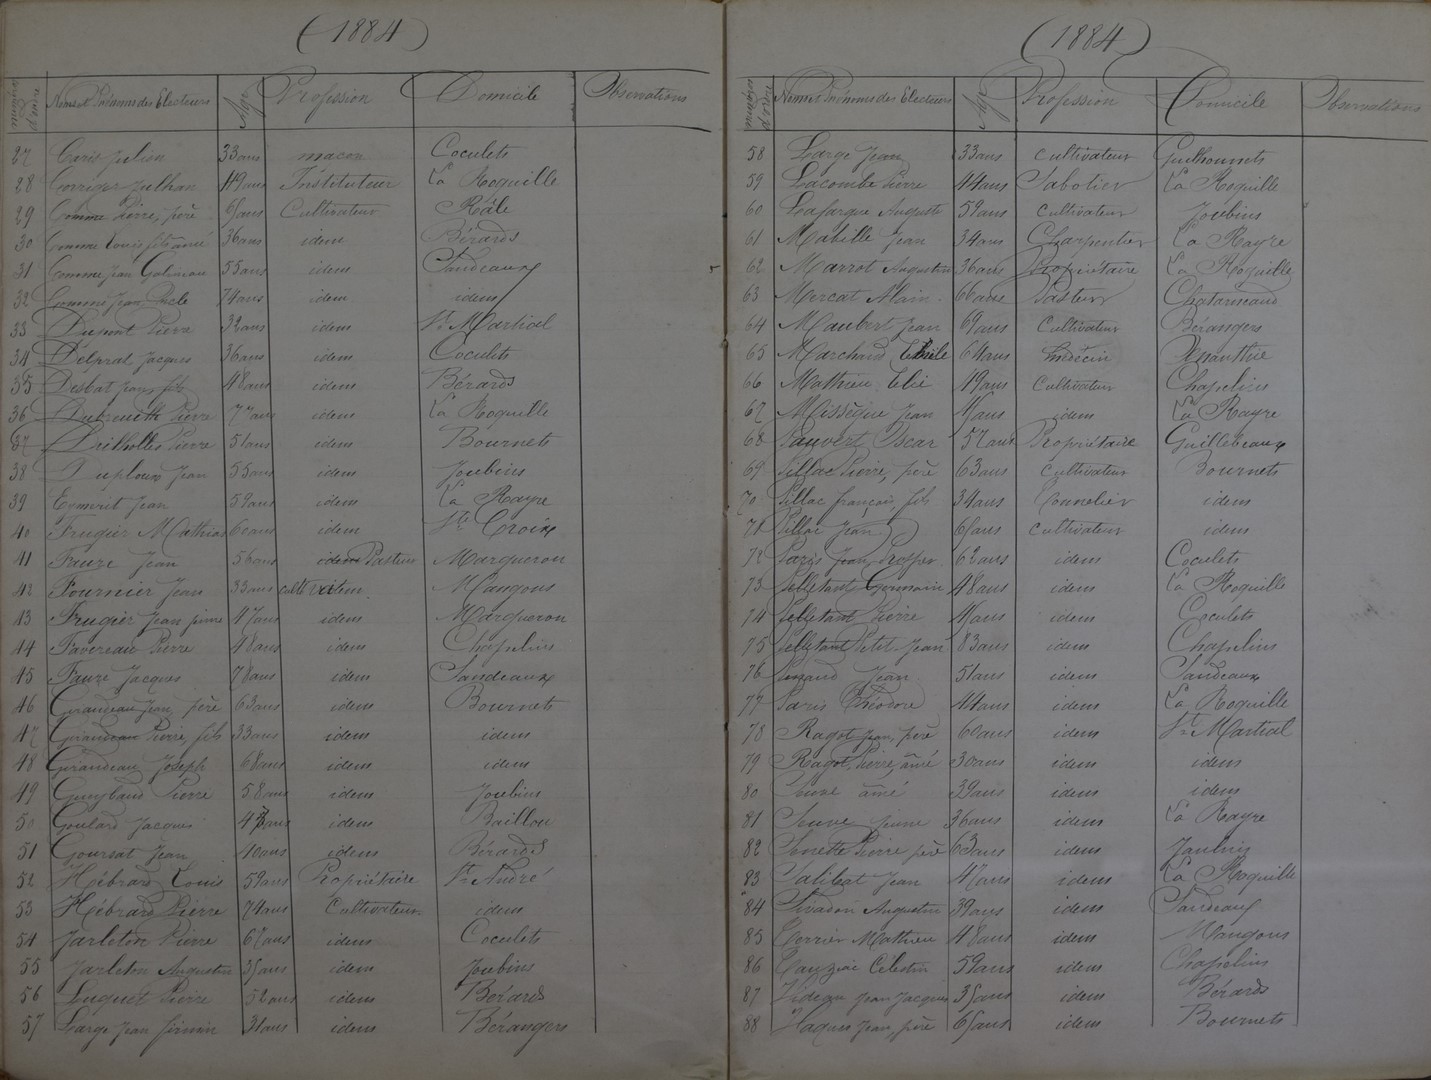 (1884)
numéros d'ordre Noms et Prénoms des Electeurs Age Profession Domicile Observations
27 Julien 33 ans maçon Coculets
28 49 ans Instituteur La Roquille
29 Comme Pierre, père ans Cultivateur Râle
30 Comme Louis fils aîné 36 ans idem Bérards
31 Comme Jean 55 ans idem Sandeaux
32 Comme Jean 74 ans idem idem
33 Dupont Pierre 32 ans idem St Martial
34 Delprat Jacques 36 ans idem Coculets
35 Jean, fils 48 ans idem Bérards
36 Pierre 77 ans idem La Roquille
37 Pierre 51 ans idem Bournets
38 Jean 55 ans idem Joubins
39 Eymerit Jean 59 ans idem La Rayre
40 Frugier Mathias 60 ans idem Ste Croix
41 Faure Jean 56 ans idem Pasteur Margueron
42 Fournier Jean 33 ans Mangons
43 Frugier Jean jeune 47 ans idem Margueron
44 Favereau Pierre 48 ans idem Chapelins
45 Faure Jacques 78 ans idem Sandeaux
46 Girandeau Jean, père 63 ans idem Bournets
47 Girandeau Pierre, fils 33 ans idem idem
48 Girandeau Joseph 68 ans idem idem
49 Pierre 58 ans idem Joubins
50 Goulard Jacques ans idem Baillou
51 Goursat Jean 40 ans idem Bérards
52 Hébrard Louis 59 ans Propriétaire St André
53 Hébrard Pierre 74 ans Cultivateur idem
54 Jarleton Pierre ans idem Coculets
55 Jarleton Augustin ans idem Joubins
56 Luquet Pierre 52 ans idem Bérards
57 Large Jean Firmin 31 ans idem Bérangers
(1884)
numéros d'ordre Noms et Prénoms des Electeurs Age Profession Domicile Observations
58 Large Jean 33 ans Cultivateur Guilhonnets
59 Lacombe Pierre 44 ans Sabotier La Roquille
60 Lafargue Auguste 59 ans Cultivateur Joubins
61 Mabille Jean 34 ans Charpentier La Rayre
62 Marrot Augustin 36 ans Propriétaire La Roquille
63 Mercat Alain 66 ans Pasteur
64 Maubert Jean 69 ans Cultivateur Bérangers
65 Marchand 64 ans médecin
66 Mathieu Elie 49 ans Cultivateur Chapelins
67 Missègue Jean ans idem La Rayre
68 Pauvert Oscar 57 ans Propriétaire Guillebeaux
69 Pillac Pierre, père 63 ans Cultivateur Bournets
70 Pillac françois, fils 34 ans Tonnelier idem
71 Pillac Jean ans Cultivateur idem
72 Paris Jean Prosper 62 ans idem Coculets
73 Pelletant Germain 48 ans idem La Roquille
74 Pelletant Pierre ans idem Coculets
75 Pelletant Petit Jean 83 ans idem Chapelins
76 Jean 51 ans idem Sandeaux
77 Paris Théodore 44 ans idem La Roquille
78 Ragot Jean, père 60 ans idem St Martial
79 Ragot Pierre, aîné 30 ans idem idem
80 aîné 39 ans idem idem
81 jeune 36 ans idem La Rayre
82 Pierre père 63 ans idem
83 Jean ans idem La Roquille
84 Augustin 39 ans idem Sandeaux
85 Mathieu 48 ans idem Mangons
86 Célestin 59 ans idem Chapelins
87 Jean Jacques ans idem Bérards
88 Jean, père ans idem Bournets